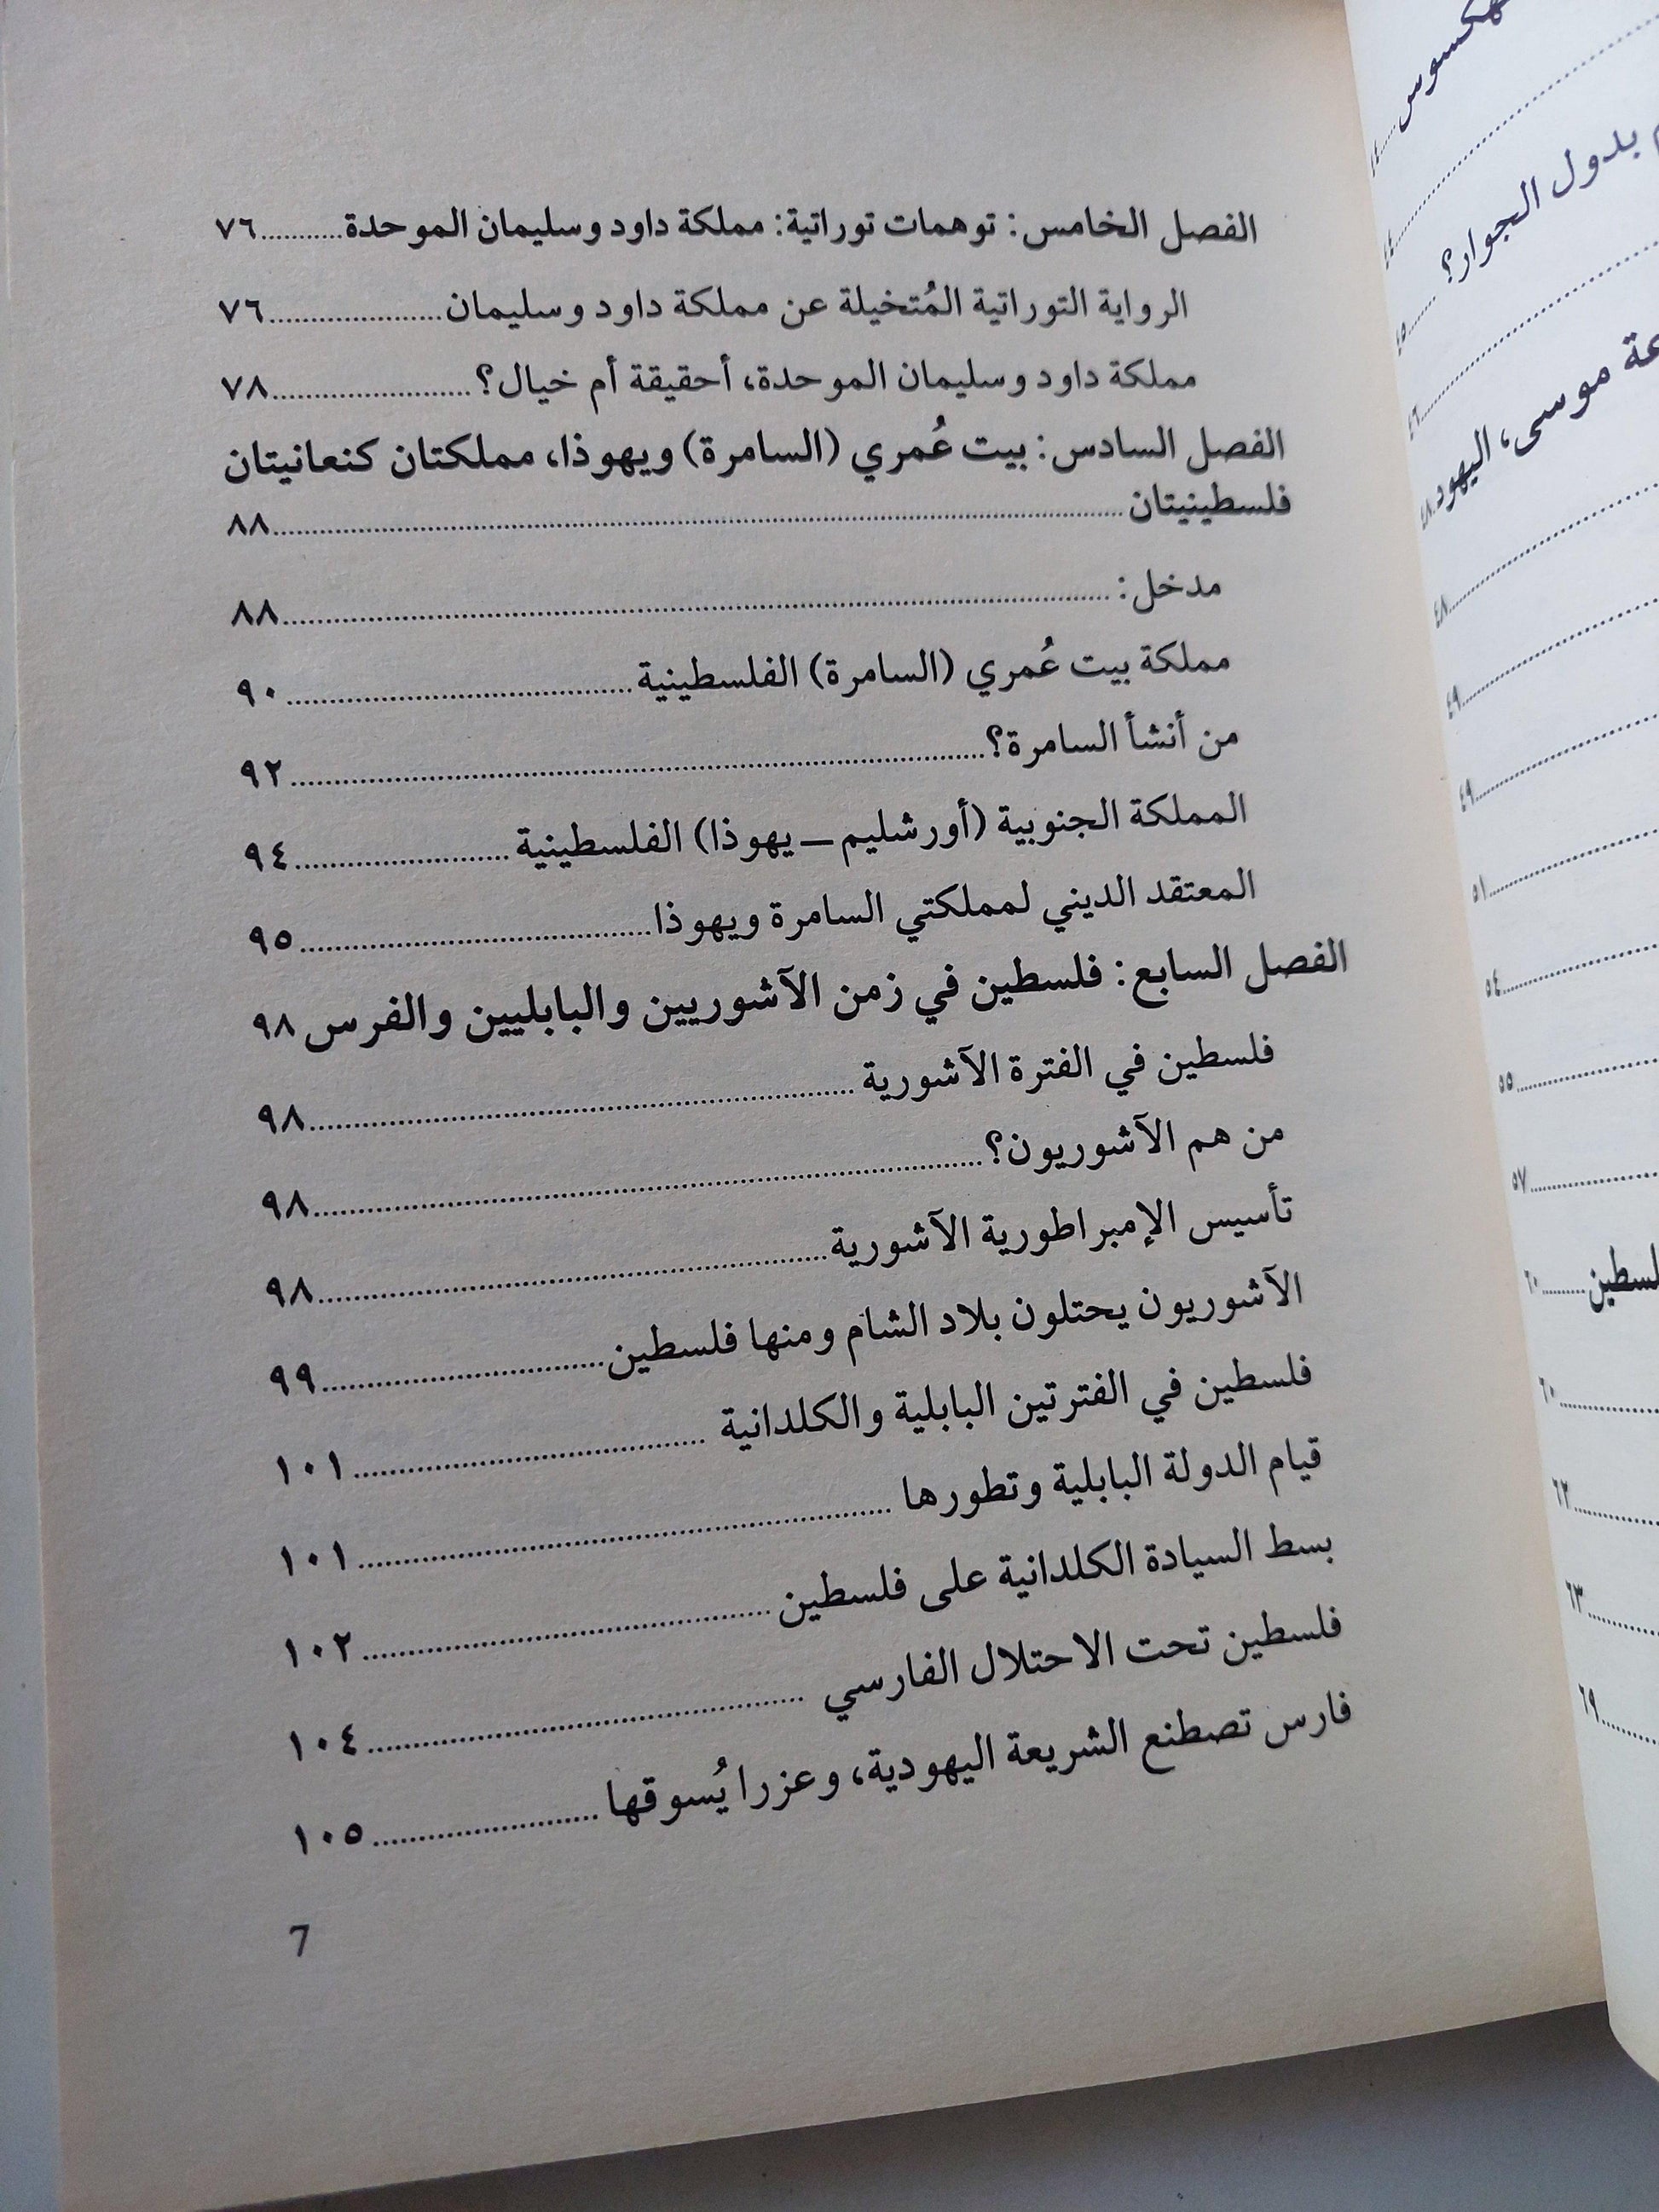 الفصل الخامس: توهمات توراتية: مملكة داود وسليمان الموحدة..........٧٦
الرواية التوراتية المُتخيلة عن مملكة داود وسليمان....................٧٦
مملكة داود وسليمان الموحدة، أحقيقة أم خيال؟......................٧٨
الفصل السادس: بيت عُمري (السامرة) ويهوذا، مملكتان كنعانيتان
فلسطينيتان....................٨٨
مدخل:....................٨٨
مملكة بيت عُمري (السامرة) الفلسطينية....................٩٠
من أنشأ السامرة؟....................٩٢
المملكة الجنوبية (أورشليم ـ يهوذا) الفلسطينية....................٩٤
المعتقد الديني لمملكتي السامرة ويهوذا....................٩٥
الفصل السابع: فلسطين في زمن الآشوريين والبابليين والفرس ٩٨
فلسطين في الفترة الآشورية....................٩٨
من هم الآشوريون؟....................٩٨
تأسيس الإمبراطورية الآشورية....................٩٨
الآشوريون يحتلون بلاد الشام ومنها فلسطين....................٩٩
فلسطين في الفترتين البابلية والكلدانية....................١٠١
قيام الدولة البابلية وتطورها....................١٠١
بسط السيادة الكلدانية على فلسطين....................١٠٢
فلسطين تحت الاحتلال الفارسي....................١٠٤
فارس تصطنع الشريعة اليهودية، وعزرا يُسوقها....................١٠٥
7
بدول الجوار؟
موسى، اليهود..٤٨
٤٨
٤٩
٤٩
٥١
٥٤
٥٥
٥٧
٦٠
٦٠
٦٢
٦٣
٦٩